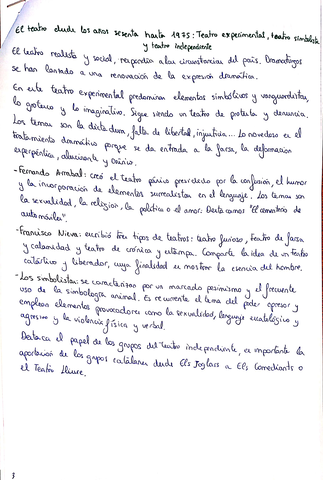 El teatro desde los años sesenta hasta 1975: Teatro experimental, teatro simbolista
y teatro independiente
El teatro realista y social, respondía a las circunstancias del país. Dramaturgos
se han lanzado a una renovación de la expresión dramática.
En este teatro experimental predominan elementos simbólicos y vanguardistas,
lo grotesco y lo imaginativo. Sigue siendo un teatro de protesta y denuncia.
Los temas son la dictadura, falta de libertad, injusticia... Lo novedoso es el
tratamiento dramático porque se da entrada a la farsa, la deformación
esperpéntica, alucinante y onírico.
-Fernando Arrabal: creó el teatro pánico presidido por la confusión, el humor
y la incorporación de elementos surrealistas en el lenguaje. Los temas son
la sexualidad, la religión, la política o el amor. Destacamos "El cementerio de
automóviles".
-Francisco Nieva: escribió tres tipos de teatros: teatro furioso, teatro de farsa
y calamidad y teatro de crónica y estampa. Comparte la idea de un teatro
catártico y liberador, cuya finalidad es mostrar la esencia del hombre.
-Los simbolistas: se caracterizan por un marcado pesimismo y el frecuente
uso de la simbología animal. Es recurrente el tema del poder opresor y
emplean elementos provocadores como la sexualidad, lenguaje escatológico y
agresivo y la violencia física y verbal.
Destaca el papel de los grupos del teatro independiente, es importante la
aportación de los grupos catalanes desde Els Joglars a Els Comediants o
el Teatro Lliure.
3